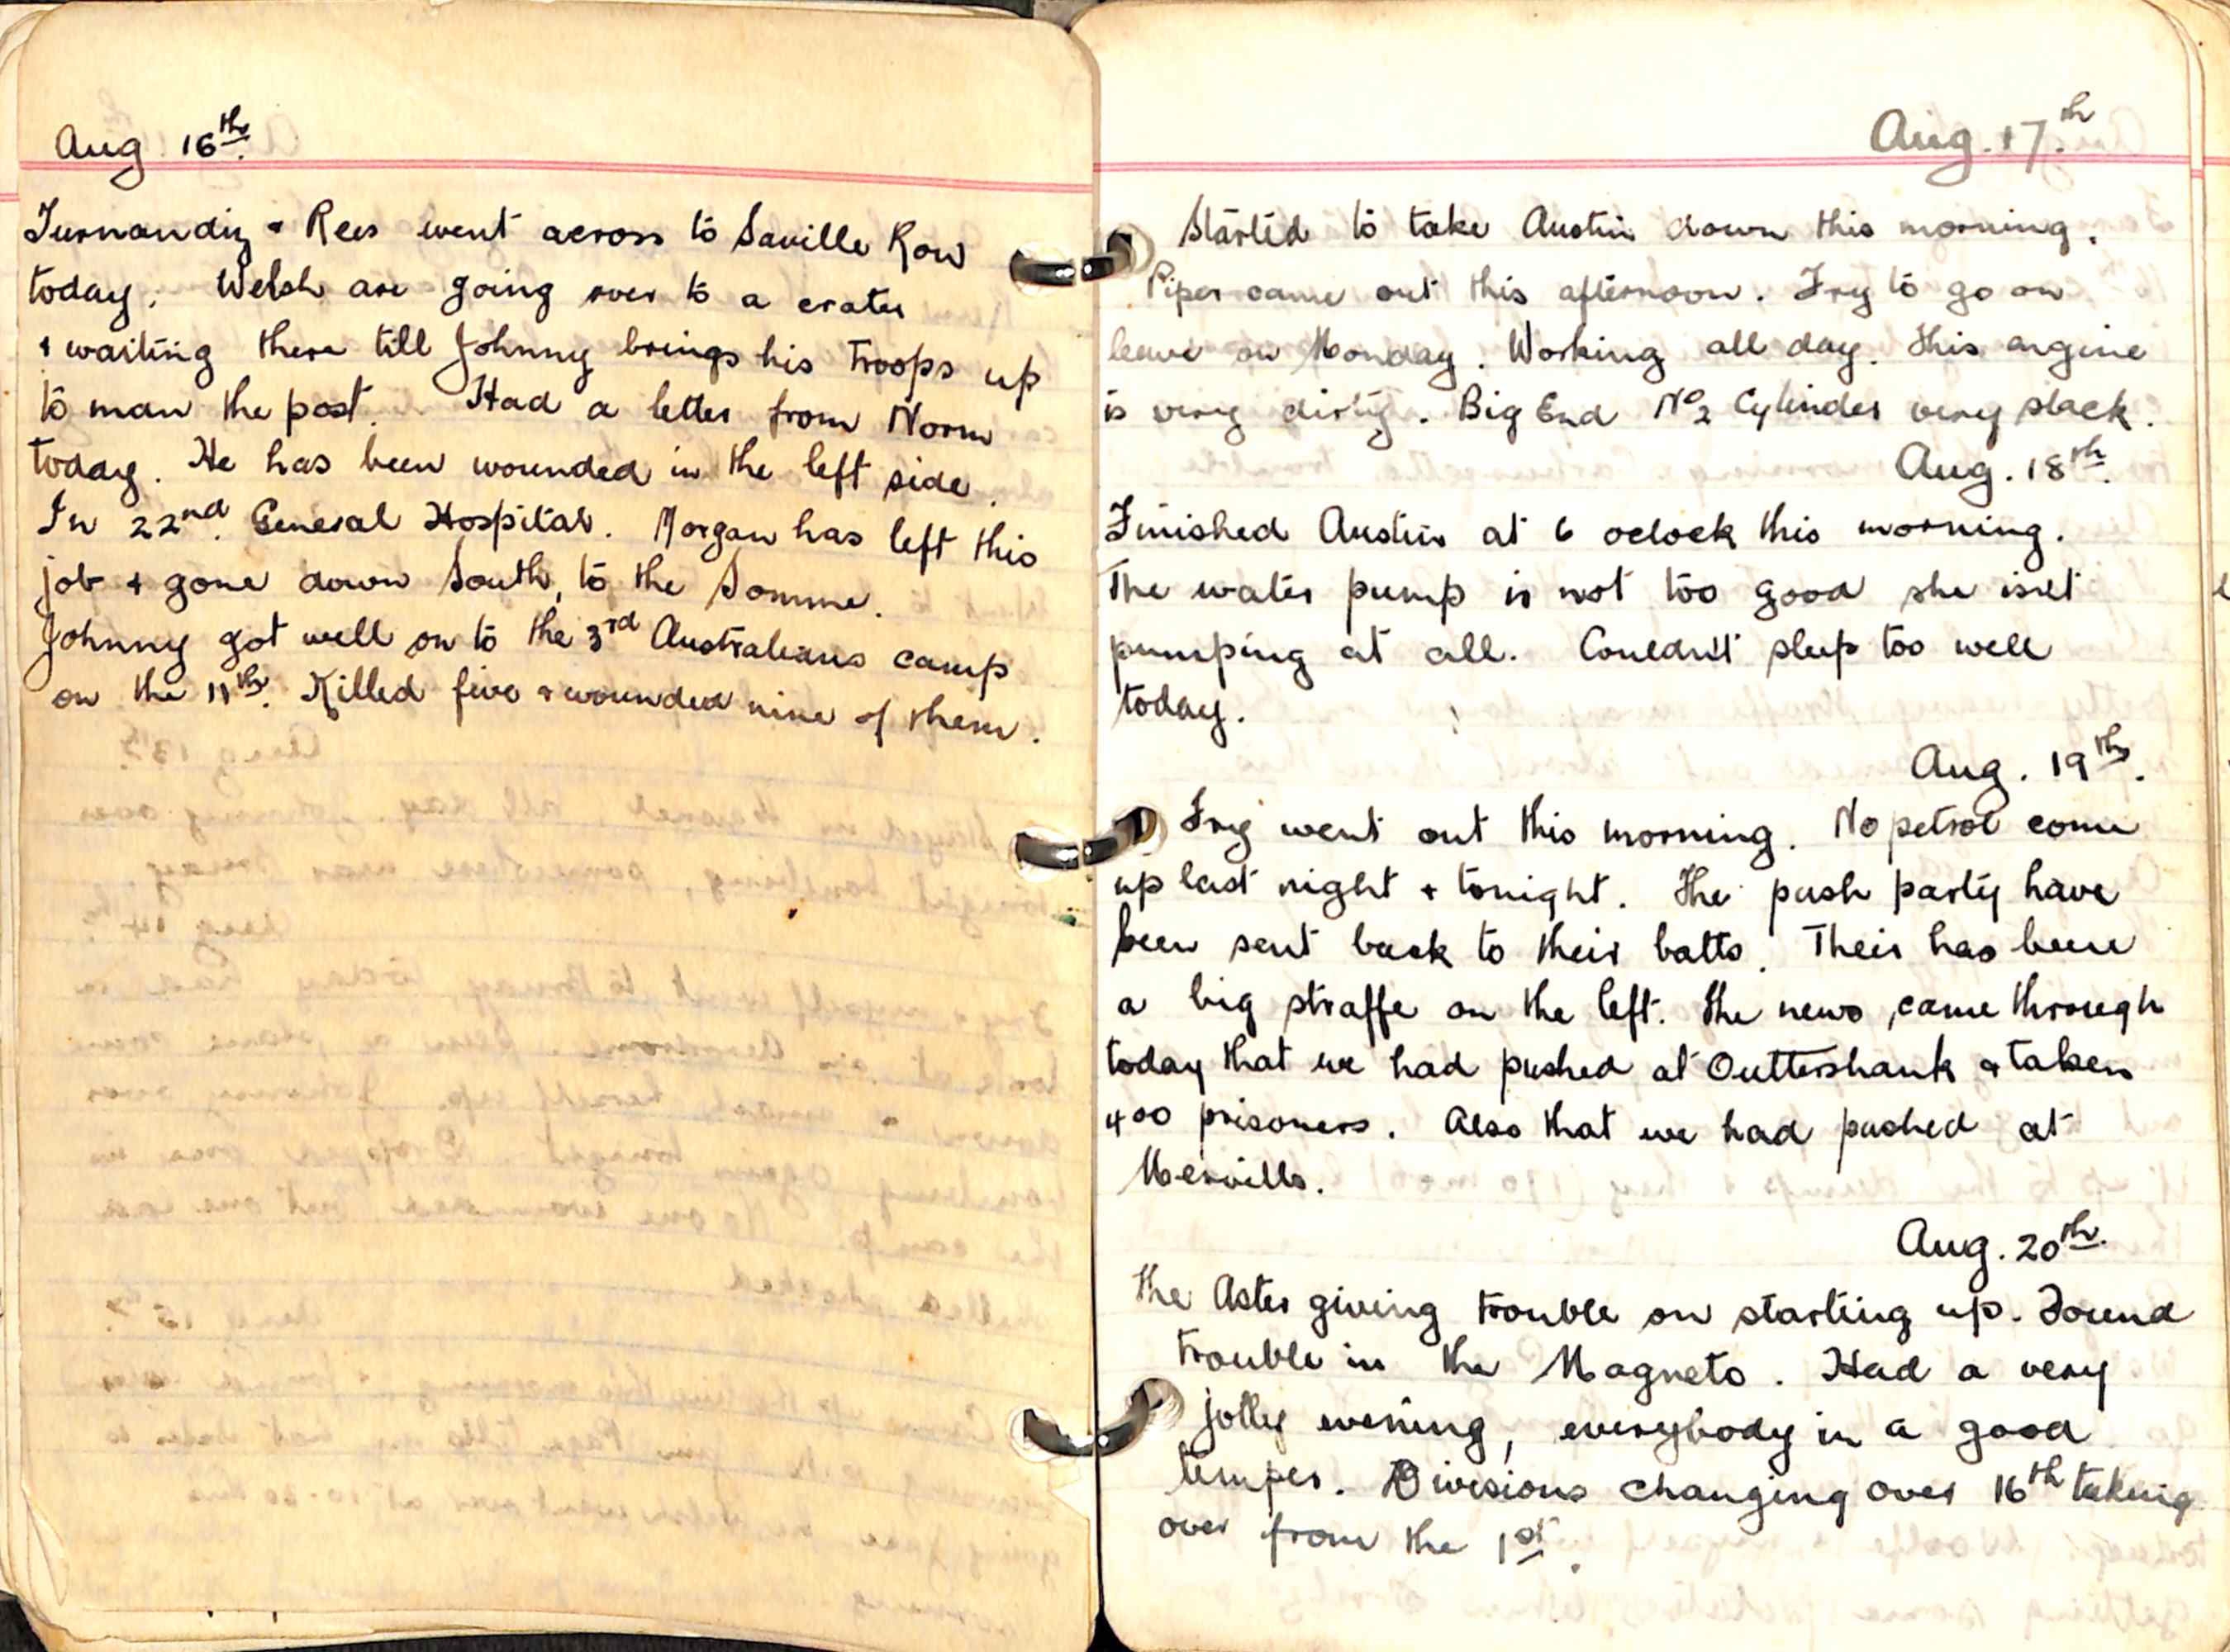 Aug 16th.
Furnandiz & Rees went across to Saville Row
today. Welsh are going over to a crater
& waiting there till Johnny brings his troops up
to man the post. Had a letter from Norm
today. He has been wounded in the left side.
In 22nd. General Hospital. Morgan has left this
job & gone down South, to the Somme.
Johnny got well on to the 3rd Australians camp
on the 11th. Killed five & wounded nine of them.
Aug. 17th
Started to take Austin down this morning.
Piper came out this afternoon. Fry to go on
leave on Monday. Working all day. This engine
is very dirty. Big End No 2 Cylinder very slack.
Aug. 18th.
Finished Austin at 6 oclock this morning.
The water pump is not too good she isnt
pumping at all. Couldn't sleep too well
today.
Aug. 19th.
Fry went out this morning. No petrol come
up last night & tonight. The push party have
been sent back to their batts. Their has been
a big straffe on the left. The news, came through
today that we had pushed at Outtershank & taken
400 prisoners. Also that we had pushed at
Merville.
Aug. 20th.
The Aster giving trouble on starting up. Found
trouble in the Magneto. Had a very
jolly evening, everybody in a good
temper. Divisions changing over 16th taking
over from the 1st.